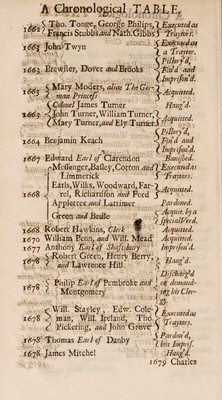 A Chronological TABLE.
1662 Tho. Tonge, George Philips, Francis Stubbs and Nath. Gibbs Executed as Traytors.
1663 John Twyn Executed as a Traytor.
1663 Brewster, Dover and Brooks Pillory'd, Fin'd and Imprison'd.
1663 Mary Moders, alias The German Princess Acquitted.
1663 Colonel James Turner Hang'd.
John Turner, William Turner, Mary Turner, and Ely Turner Acquitted.
1664 Benjamin Keach Pillory'd, Fin'd and Imprison'd.
1667 Edward Earl of Clarendon Banished.
1668 Messenger, Basley, Cotton and Limmerick Executed as Traytors.
Earls, Wilks, Woodward, Farrel, Richardson and Ford Acquitted.
Appletree and Lattimer Pardoned.
Green and Bedle Acquit. by a special Ver.
1668 Robert Hawkins, Clerk Acquitted.
1670 William Penn, and Will. Mead Acquitted.
1677 Anthony Earl of Shaftsbury Imprison'd.
1678 Robert Green, Henry Berry, and Lawrence Hill Hang'd.
1678 Philip Earl of Pembroke and Montgomery Discharg'd on demanding his Clergy.
1678 Will. Stayley, Edw. Coleman, Will. Ireland, Tho. Pickering, and John Grove Executed as Traytors.
1678 Thomas Earl of Danby Pardon'd, but Impris.
1678 James Mitchel Hang'd.
1679 Charles